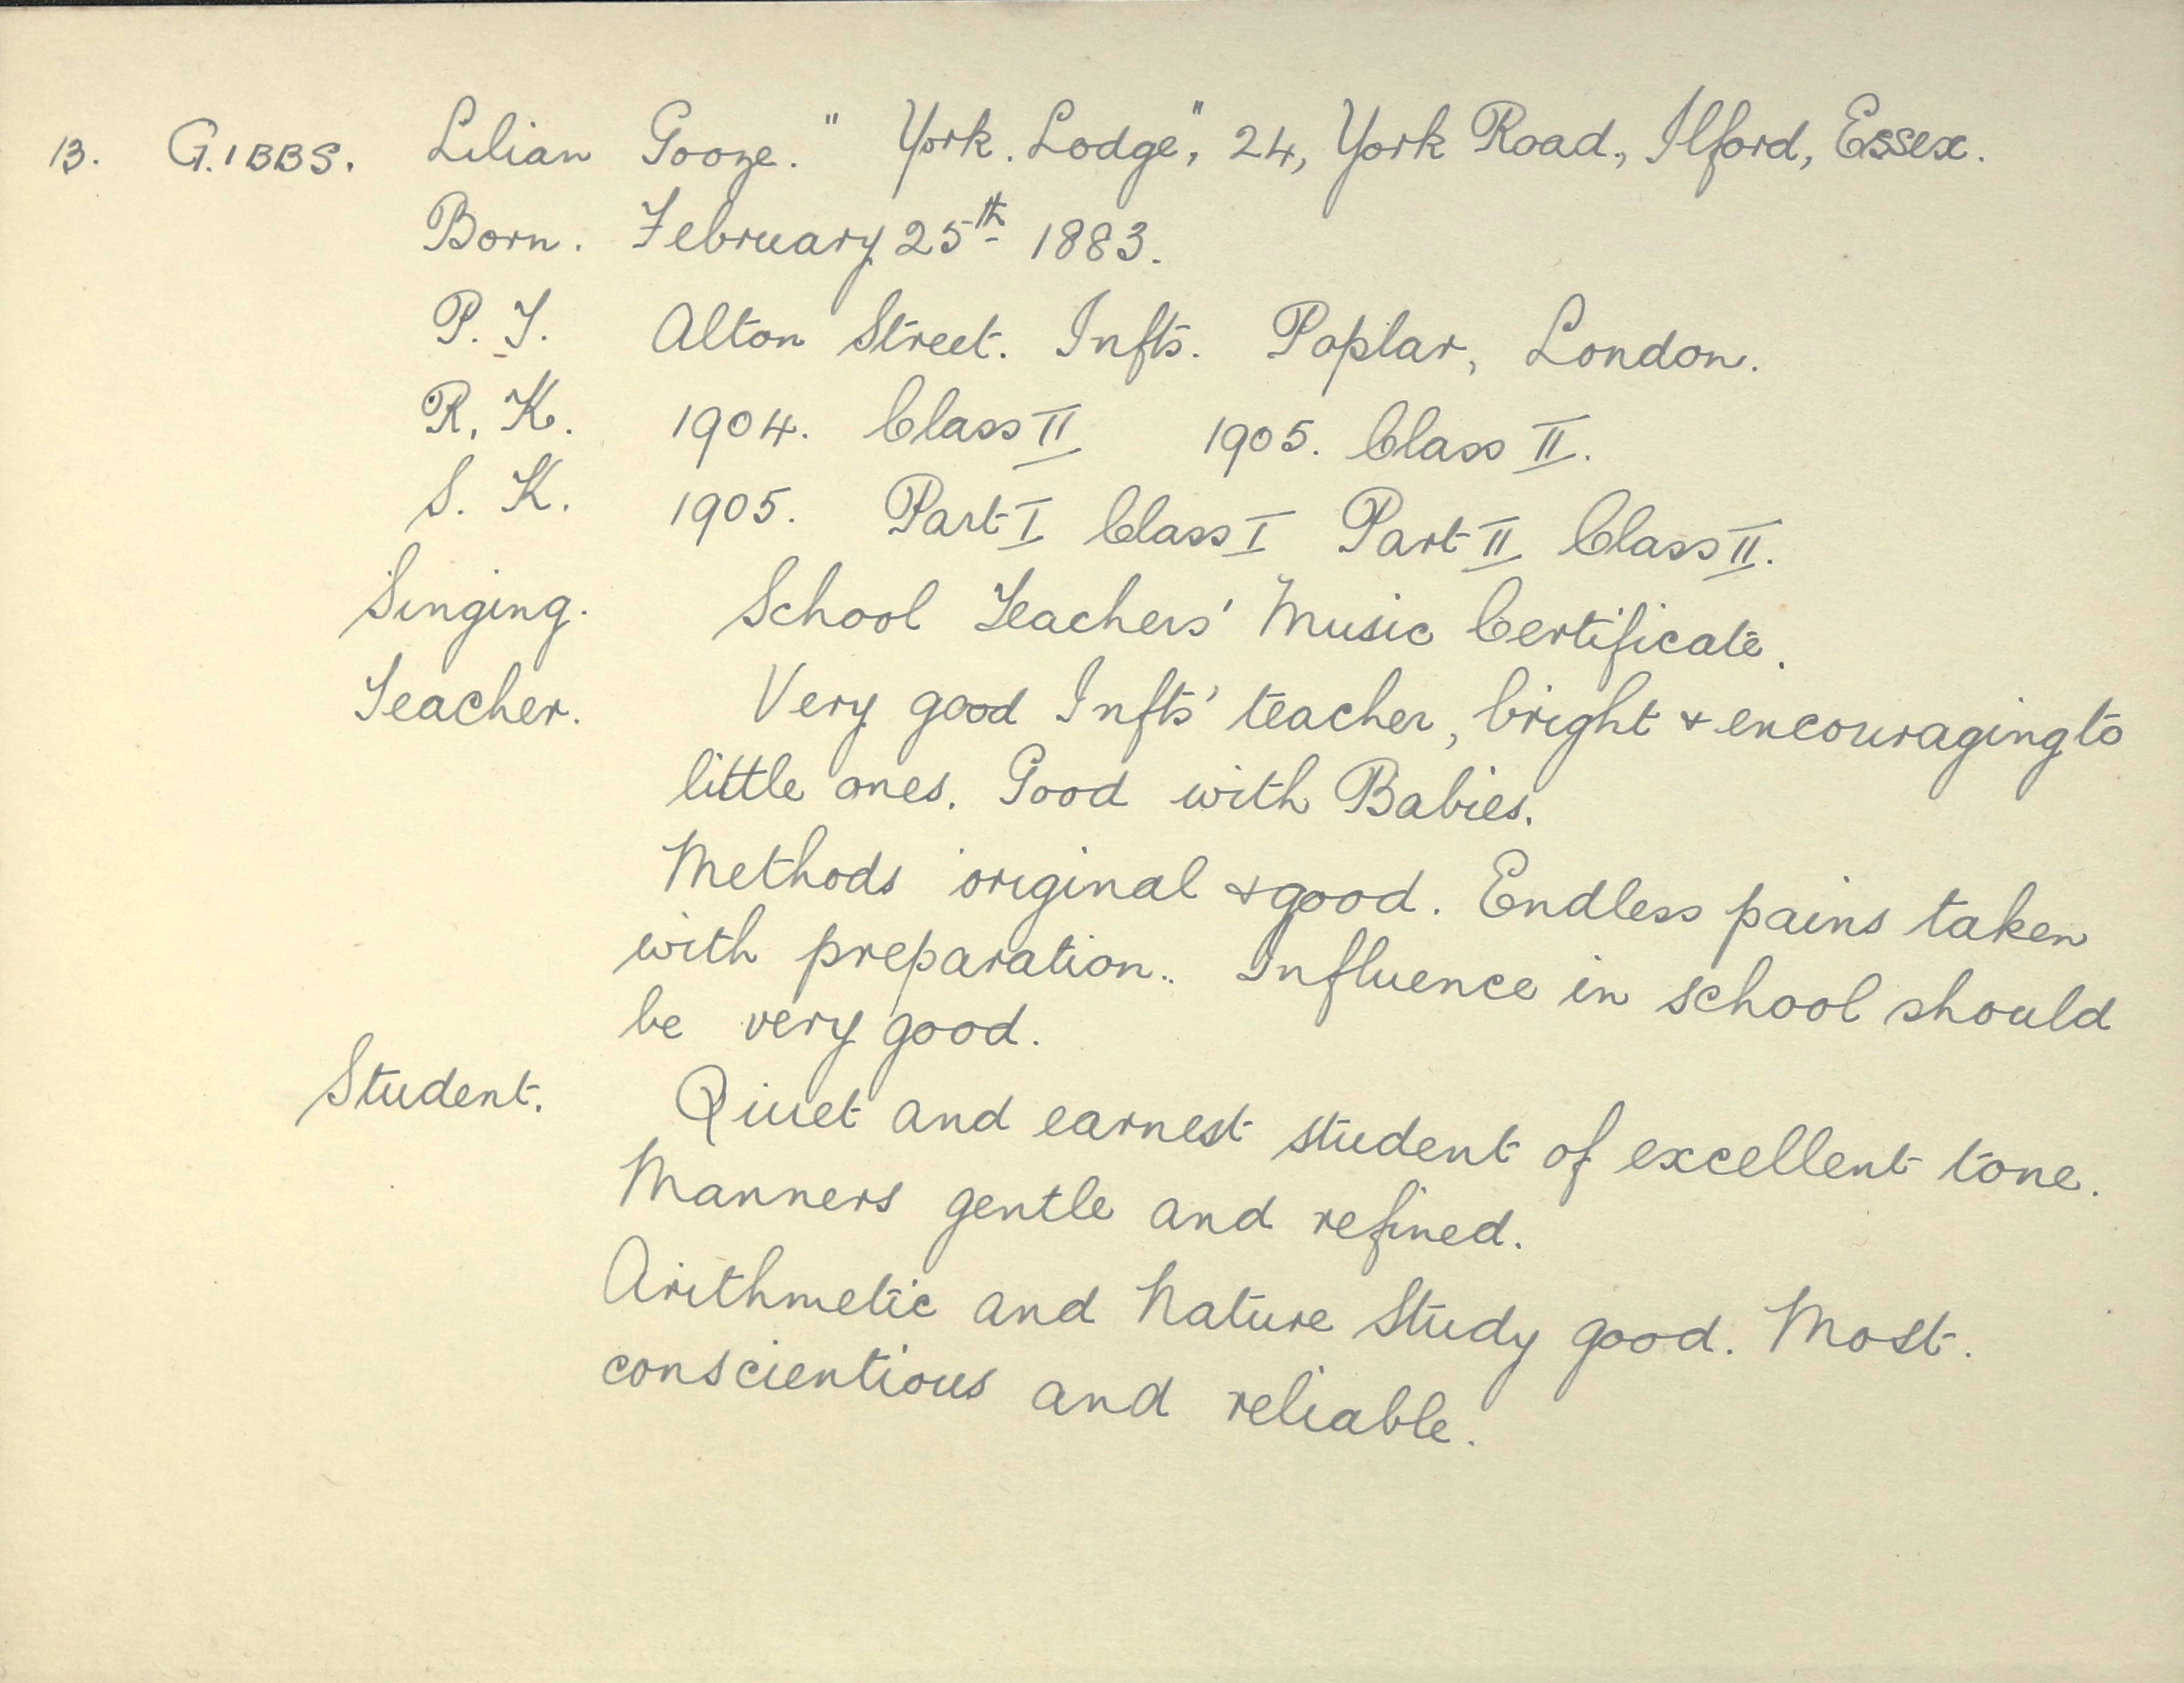 13. GIBBS. Lilian Gooze. "York. Lodge", 24, York Road., Ilford, Essex.
Born. February 25th 1883.
P. T. Alton Street. Infts. Poplar, London.
R. K. 1904. Class II 1905. Class II.
S. K. 1905. Part I Class I Part II Class II.
Singing. School Teachers' Music Certificate.
Teacher. Very good Infts' teacher, bright & encouraging to
little ones. Good with Babies.
Methods original & good. Endless pains taken
with preparation. Influence in school should
be very good.
Student. Qiuet and earnest student of excellent tone.
Manners gentle and refined.
Arithmetic and Nature Study good. Most.
conscientious and reliable.